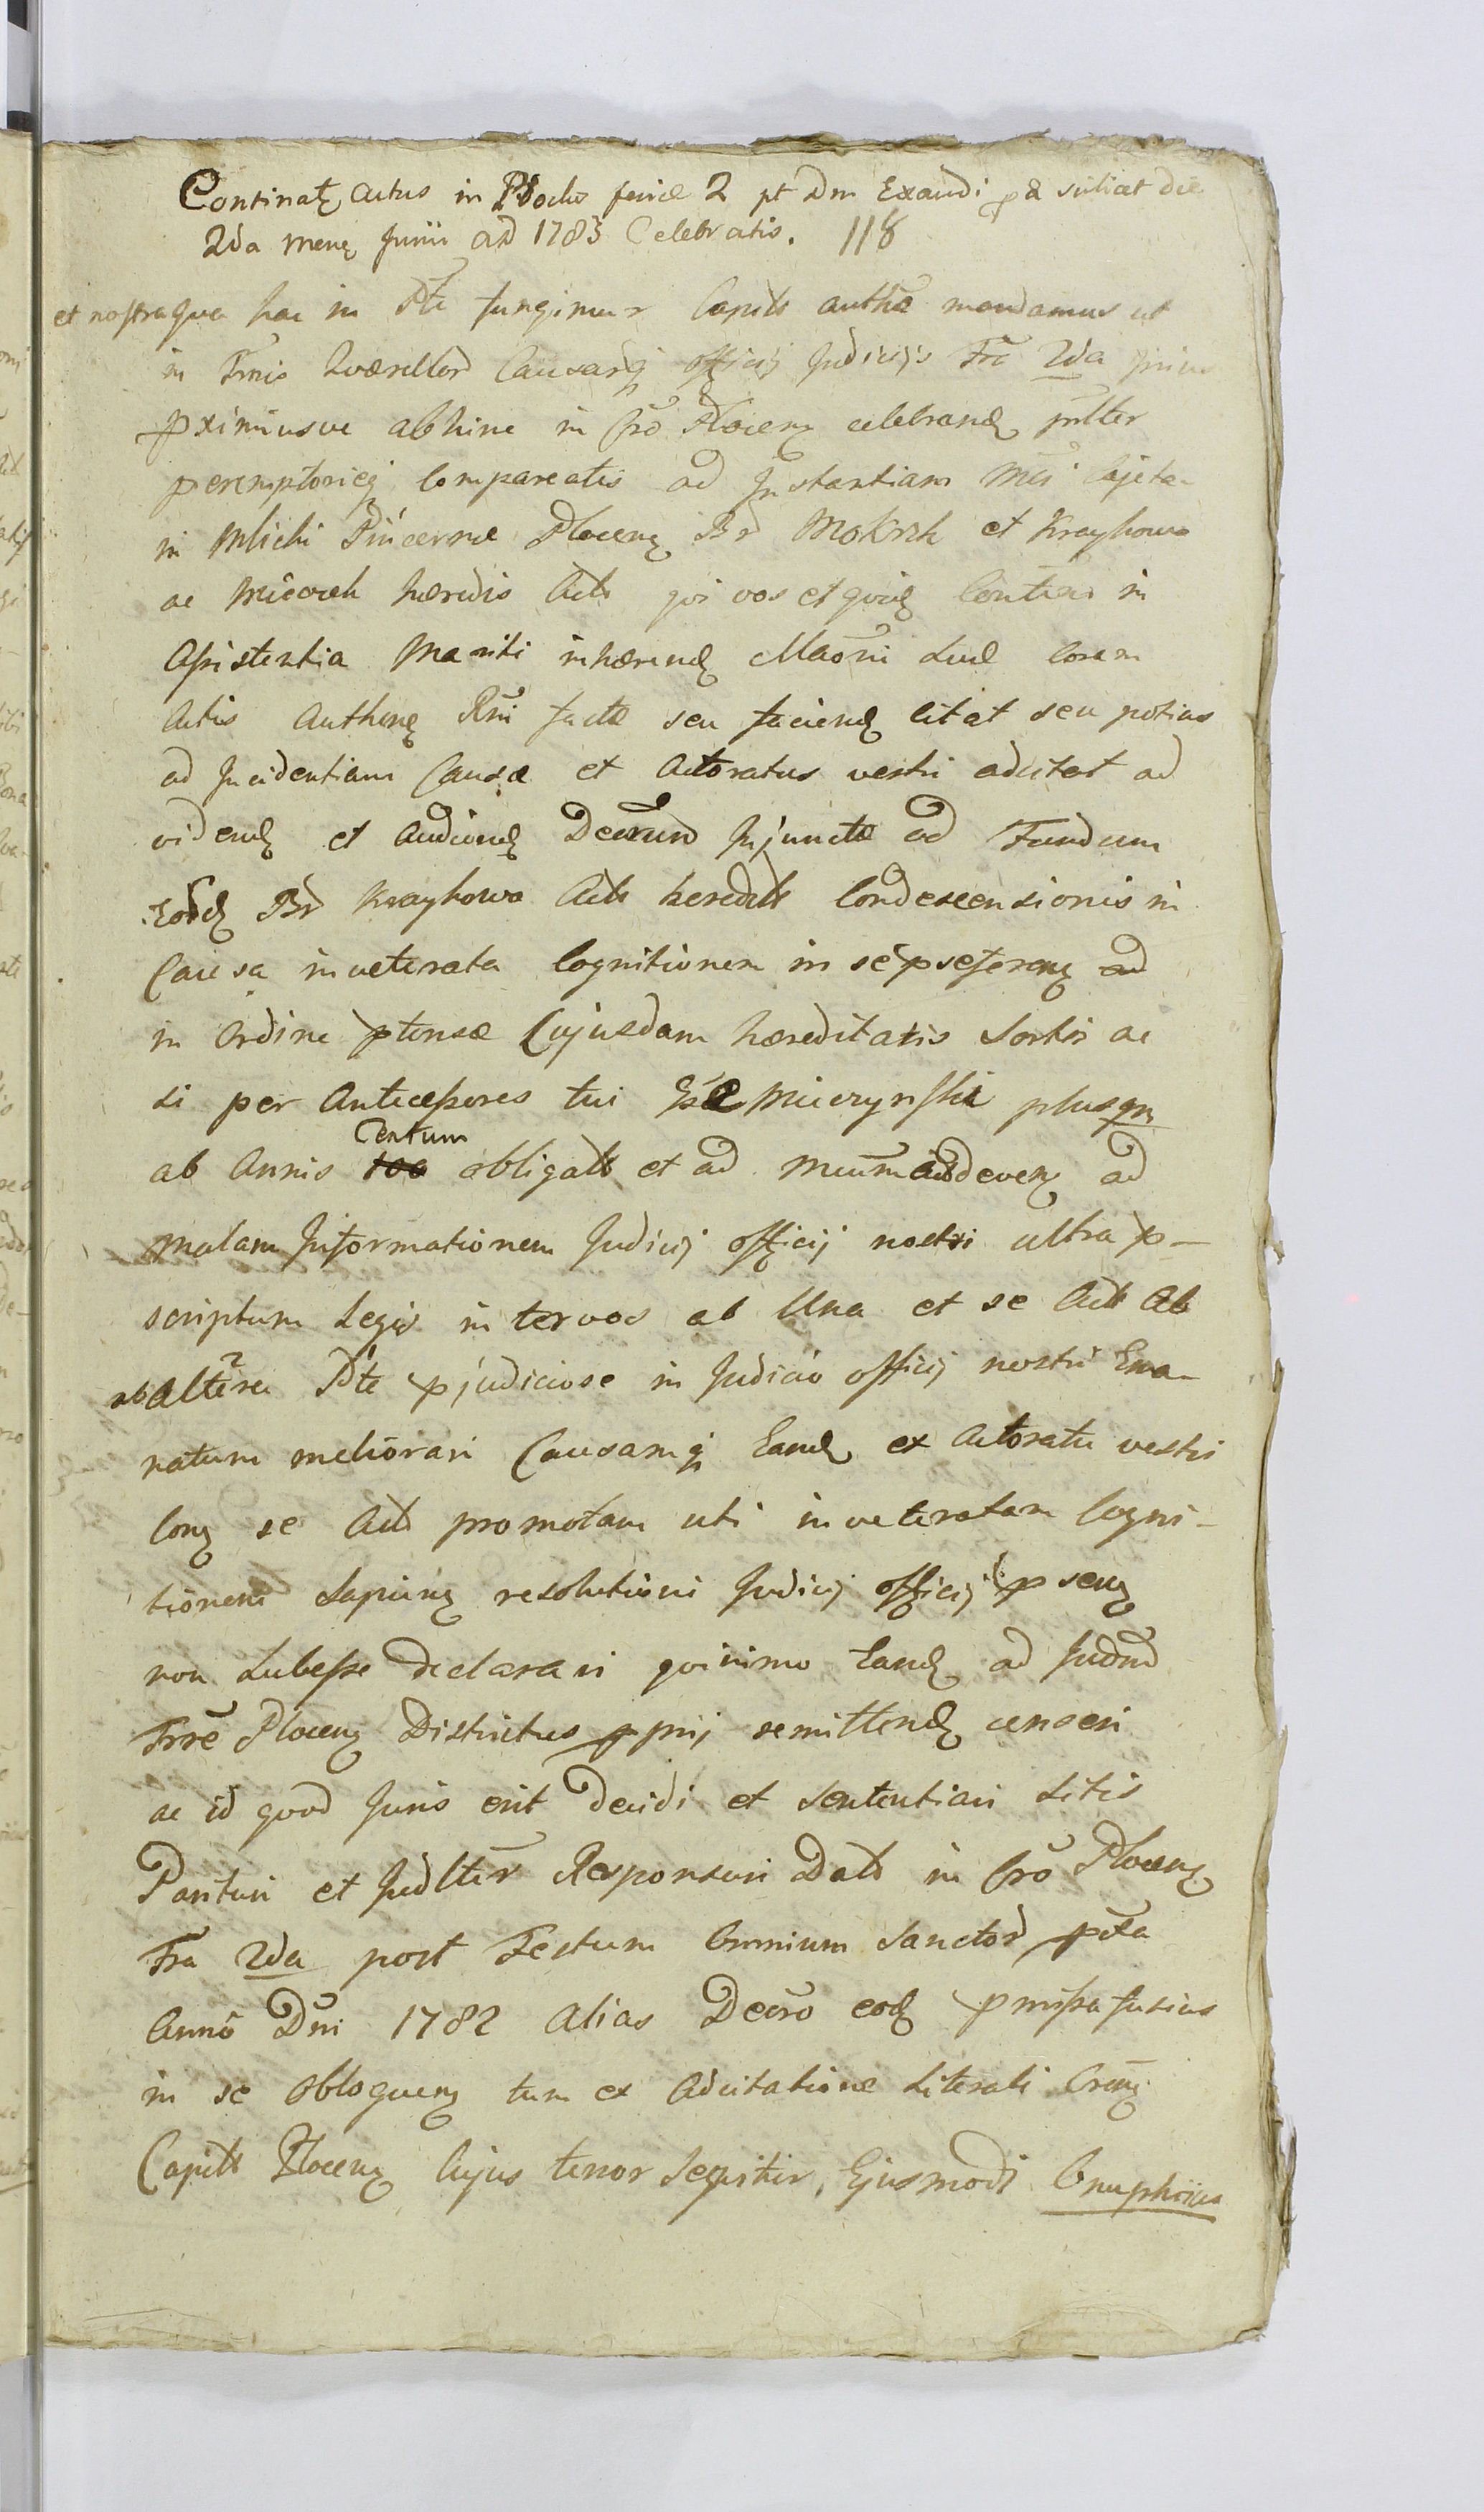 Continatę actus in Plocko feriae 2 pt Dm Exaudi scilicet die
2da mens Junii ad 1783 Celebratis. 118
et nostra qua hac in Pte fungimur Capitls autha mandamus ut
in Trnis Quaerellord Causarq officij Judicijs Fra 2da
pximiusve abhinc in Cro Plocenę celebrandę
peremptorieq compareatis ad Instantiam Mci Cajeta-
ni Mlicki Pincernae Plocenę Bd Mokrzk et Krayhowo
ac haeredis Actt qvi vos et qvilę in
Assistentia Mariti inhaerendę Luae coram
Actis Authenę Rni factae seu faciendę citat seu potius
ad Incidentiam Causae et Actoratus vestri adcitat ad
videndę et Audiendę Decrum Injunctae ad Fundum
Eordę Bd Krayhowo Actt heredtt Condescensionis in
Causa inveterata Cognitionem in se pseferenę
in Ordine ptensae Cujusdam haereditatis Sortis ac
si per Antecessores tui plusqm
ab Annis Centum obligatt et ad devenę ad
malam Informationem Judicij officij nostri ultra p-
scriptum Legis inter vos ab Una et se Actt Ab
ab altera Pte pjudiciose in Judicio officij nostri Ema-
natum meliorari Causamq Eandę ex Actoratu vestri
Conę se Actt promotam uti inveteratam Cogni-
tionem Sapienę resolutioni Judicij officij psenę
non Subesse declarari qvinimo Eandę ad Judm
Trre Plocenę Districtus pprij remittendę censeri
ac id qvod Juris erit Decidi et Sententiari Litis
Parituri et Judltr Responsuri Datt in Cro Plocenę
Fra 2da post Festum Omnium Sanctord pxa
Anno Dni 1782 alias Decro eodę pmissa fusius
in se obloquenę tum ex Adcitatione Literali
Capitt Plocenę Cujus tenor Seqvitur, Ejusmodi Onuphrius